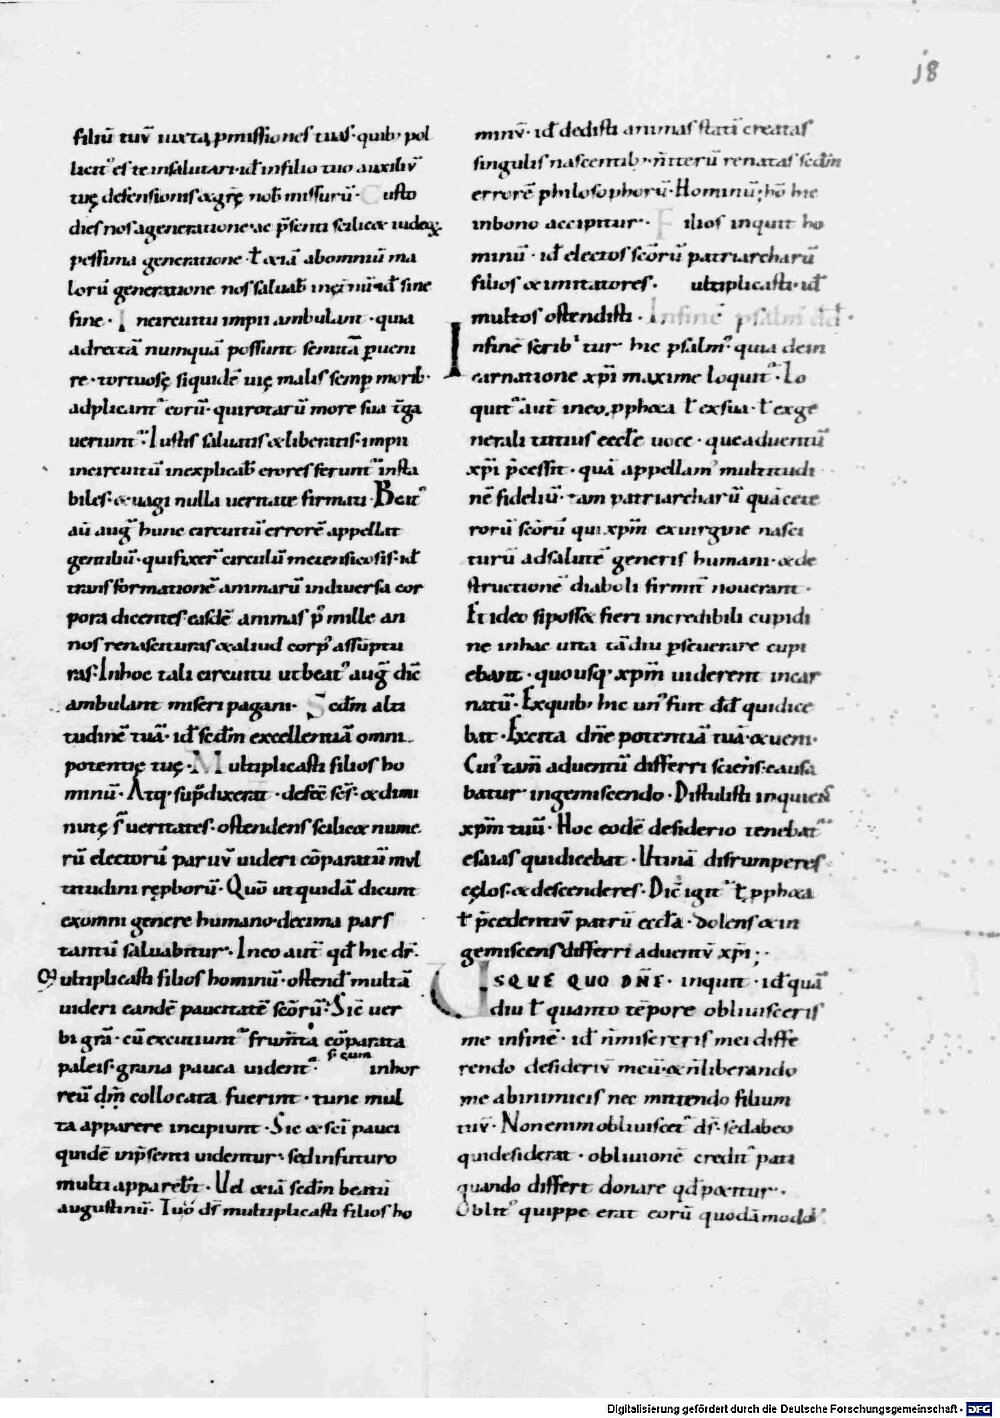 18
filiū tuū iuxta ꝓmissiones tuas · quib; pol
licit᾿ es te in salutari · id̄ in filio tuo auxiliū
tuę defensionis & gr̄ę nob̄ missurū · Custo
dies nos a generatione · ac p̄senti scilic& iudeoꝝ
pessima generatione · ł &iā ab omniū ma
lorū generatione nos saluab̄ in ęt̄nū · id̄ sine
fine · In circuitu impii ambulant · quia
ad rectā numquā possunt semitā ꝑueni
re · tortuosę siquidē uię malis semꝑ morib·
adplicant᾿ eorū · qui rotarū more sua t̄ga
uertunt᾿ · Iustis saluatis & liberatis · impii
in circuitū inexplicab̄ erores ferunt᾿ insta
biles · & uagi nulla ueritate firmati · Beat᾿
aū aug᾿ hunc circuitū errorē appellat
gentibū · qui fixer᾿ circulū metensicosis · id̄
transformationē animarū in diuersa cor
pora dicentes · easdē animas p᾿ mille an
nos renascituras & aliud corp᾿ assūptu
ras · In hoc tali circuitu ut beat᾿ aug᾿ dic̄
ambulant miseri pagani · Scd̄m alti
tudinē tuā · id̄ scd̄m excellentiā omni
potentię tuę · Multiplicasti filios ho
minū · Atq· sup̄ dixerat · defec̄ sc̄s · & dimi
nutę s̄ ueritates · ostendens scilic& nume
rū electorū paruū uideri cōparatū mul
titudini reproborū · Quō ut quidā dicunt
ex omni genere humano · decima pars
tantū saluabitur · In eo aut̄ qd̄ hic dr̄ ·
Multiplicasti filios hominū · ostend̄ multā
uideri eandē paucitatē sc̄orū · Sic̄ uer
bi gr̄a · cū excutiunt᾿ frum̄ta cōparata
paleis · grana pauca uident᾿ · s; cum in hor
reū dn̄i collocata fuerint · tunc mul
ta apparere incipiunt · Sic & sc̄i pauci
quidē in p̄senti uidentur · sed in futuro
multi appareb̄t · Vel &iā scd̄m beatū
augustinū · Tuō ds̄ multiplicasti filios ho
minū · id̄ dedisti animas statī creatas
singulis nascentib; · n̄ iterū renatas scd̄m
errorē philosophorū · Hominū; hō hic
in bono accipitur · Filios inquit ho
minū · id̄ electos sc̄orū patriarcharū
filios & imitatores · ultiplicasti · id̄
multos ostendisti · In finē psalm᾿ dd̄ ·
In finē scrib᾿tur hic psalm᾿ quia de in
carnatione xp̄i maxime loquit᾿ · Lo
quit᾿ aut̄ in eo ꝓph&a ł ex sua · ł ex ge
nerali totius eccl̄e uoce · que aduentū
xp̄i p̄cessit · quā appellam᾿ multitudi
nē fideliū · tam patriarcharū quā cete
rorū sc̄orū qui xp̄m ex uirgine nasci
turū ad salutē generis humani · & de
structionē diaboli firmit᾿ nouerant ·
Et ideo si poss& fieri incredibili cupidi
ne in hac uita tādiu pseuerare cupi
ebant · quousq· xp̄m uiderent incar
natū · Ex quib; hic un᾿ fuit dd̄ qui dice
bat · Excita dn̄e potentiā tuā · & ueni ·
Cui᾿ tam̄ aduentū differri sciens · causa
batur ingemiscendo · Distulisti inquiens
xp̄m tuū · Hoc eodē desiderio tenebat᾿
esaias qui dicebat · Utinā disrumperes
cęlos · & descenderes · Dic̄ igit᾿ ł ꝓph&a
ł p̄cedentiū patrū eccl̄a · dolens & in
gemiscens differri aduentū xp̄i ;·
USQUE QUO DN̄E · inquit · id̄ quā
diu ł quanto tēpore obliuisceris
me in finē · id̄ n̄ misereris mei diffe
rendo desideriū meū · & n̄ liberando
me ab inimicis nec mittendo filium
tuū · Non enim obliuiscet᾿ ds̄ · sed ab eo
qui desiderat · obliuionē credit᾿ pati
quando differt donare qd̄ p&itur ·
Oblit᾿ quippe erat eorū quodāmodo
Digitalisierung gefördert durch die Deutsche Forschungsgemeinschaft - DFG